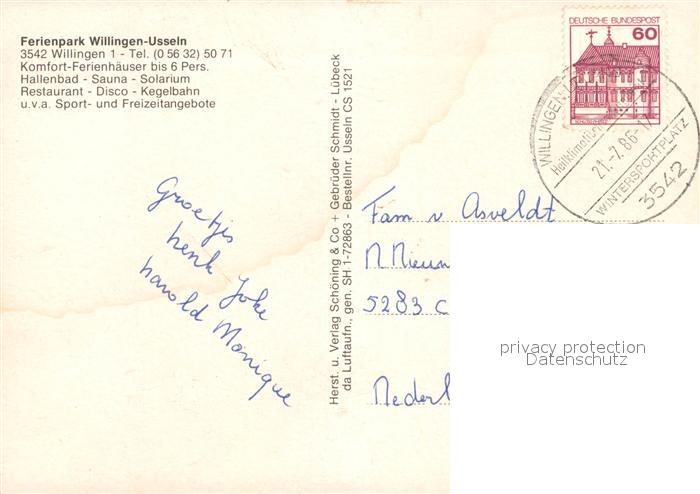 Ferienpark Willingen-Usseln
3542 Willingen 1 - Tel. (0 56 32) 50 71
Komfort-Ferienhäuser bis 6 Pers.
Hallenbad - Sauna - Solarium
Restaurant - Disco - Kegelbahn
u.v.a. Sport- und Freizeitangebote
Groetjes
henk Joke
harold Monique
Herst. u. Verlag Schöning & Co + Gebrüder Schmidt - Lübeck
da Luftaufn., gen. SH 1-72863 - Bestellnr. Usseln CS 1521
DEUTSCHE BUNDESPOST
60
WILLINGEN
Heilklimatisch
21.-7.86.-17
WINTERSPORTPLATZ
3542
Fam v Asveldt
M Nieuw
5283 C
Nederl
privacy protection
Datenschutz